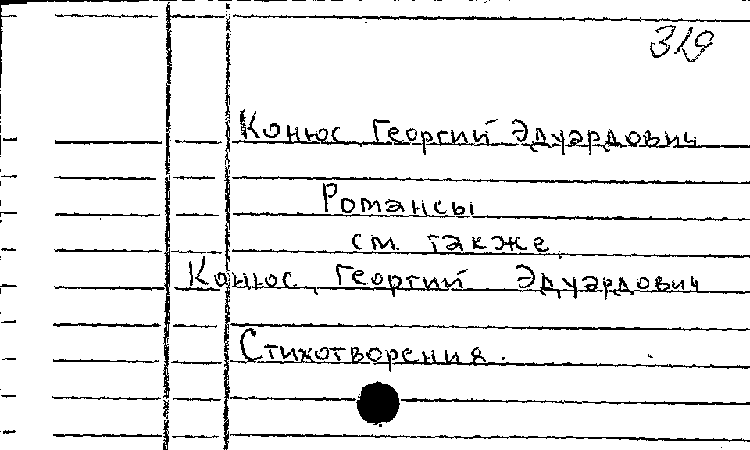 319
Конюс, Георгий Эдуардович
Романсы
см. также
Конюс, Георгий Эдуардович
Стихотворения.